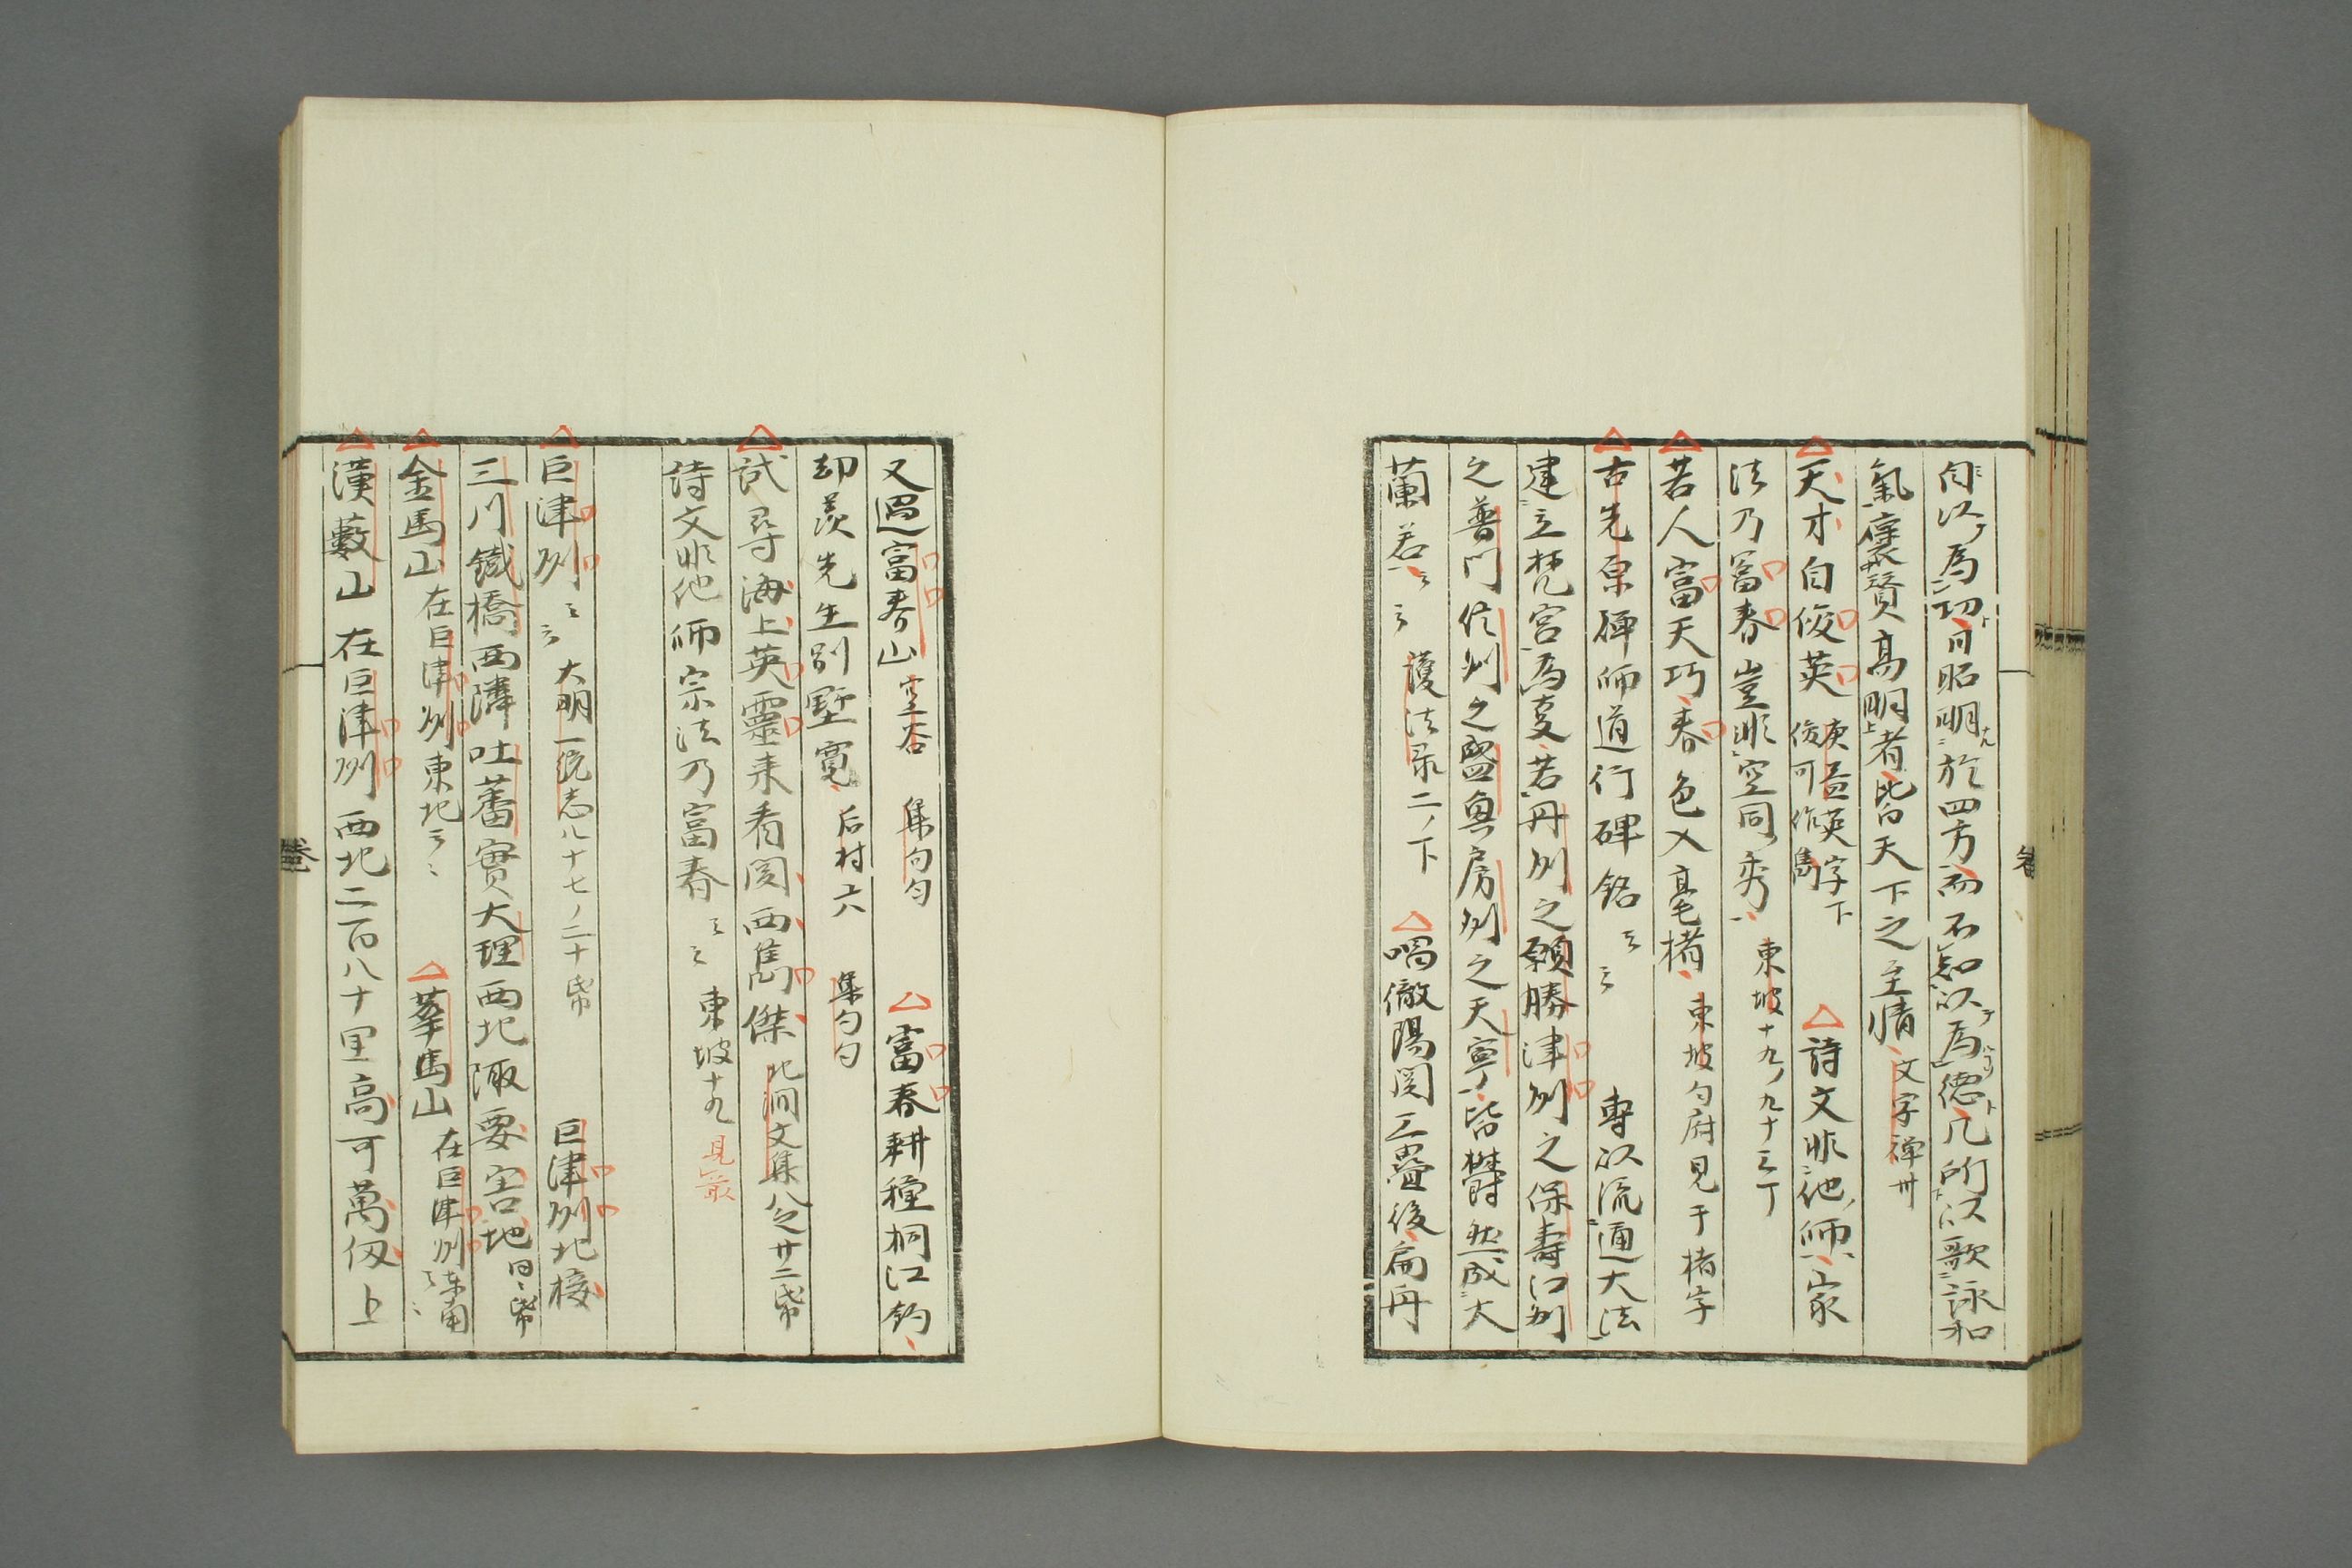 為功日昭明於四方而不知以為德凡所以歌詠和
氣褒賢高明者皆天下之至情 文字禅卅
天才自俊英 庚益英字下 俊可作雋 詩文非他師家
法乃富春豈非空同秀 東坡十九ノ九十三丁
若人富天巧春色入毫楮 東坡勺府見于楮字
古先原禅師道行碑銘 専以流通大法
建立梵宮為夏若丹州之願勝津州之保壽江州
之普門信州之盤奥房州之天寧皆欝然成大
蘭若 護法录二ノ下 唱徹陽関三疊後扁舟
又過富春山 空谷 集句勺 富春耕種桐江釣
却羨先生別墅寛 后村六 集勺勺
試尋海上英靈来看関西雋傑 北澗文集八之廿二帋
詩文非他師宗法乃富春 東坡十九 見前
巨津州 大明一統志八十七ノ二十帋 巨津州北接
三川鐵橋西隣吐蕃實大理西北陬要害地 同帋
金馬山 在巨津州東北 華馬山 在巨津州東南
漢藪山 在巨津州西北二百八十里高可萬仭上
巻